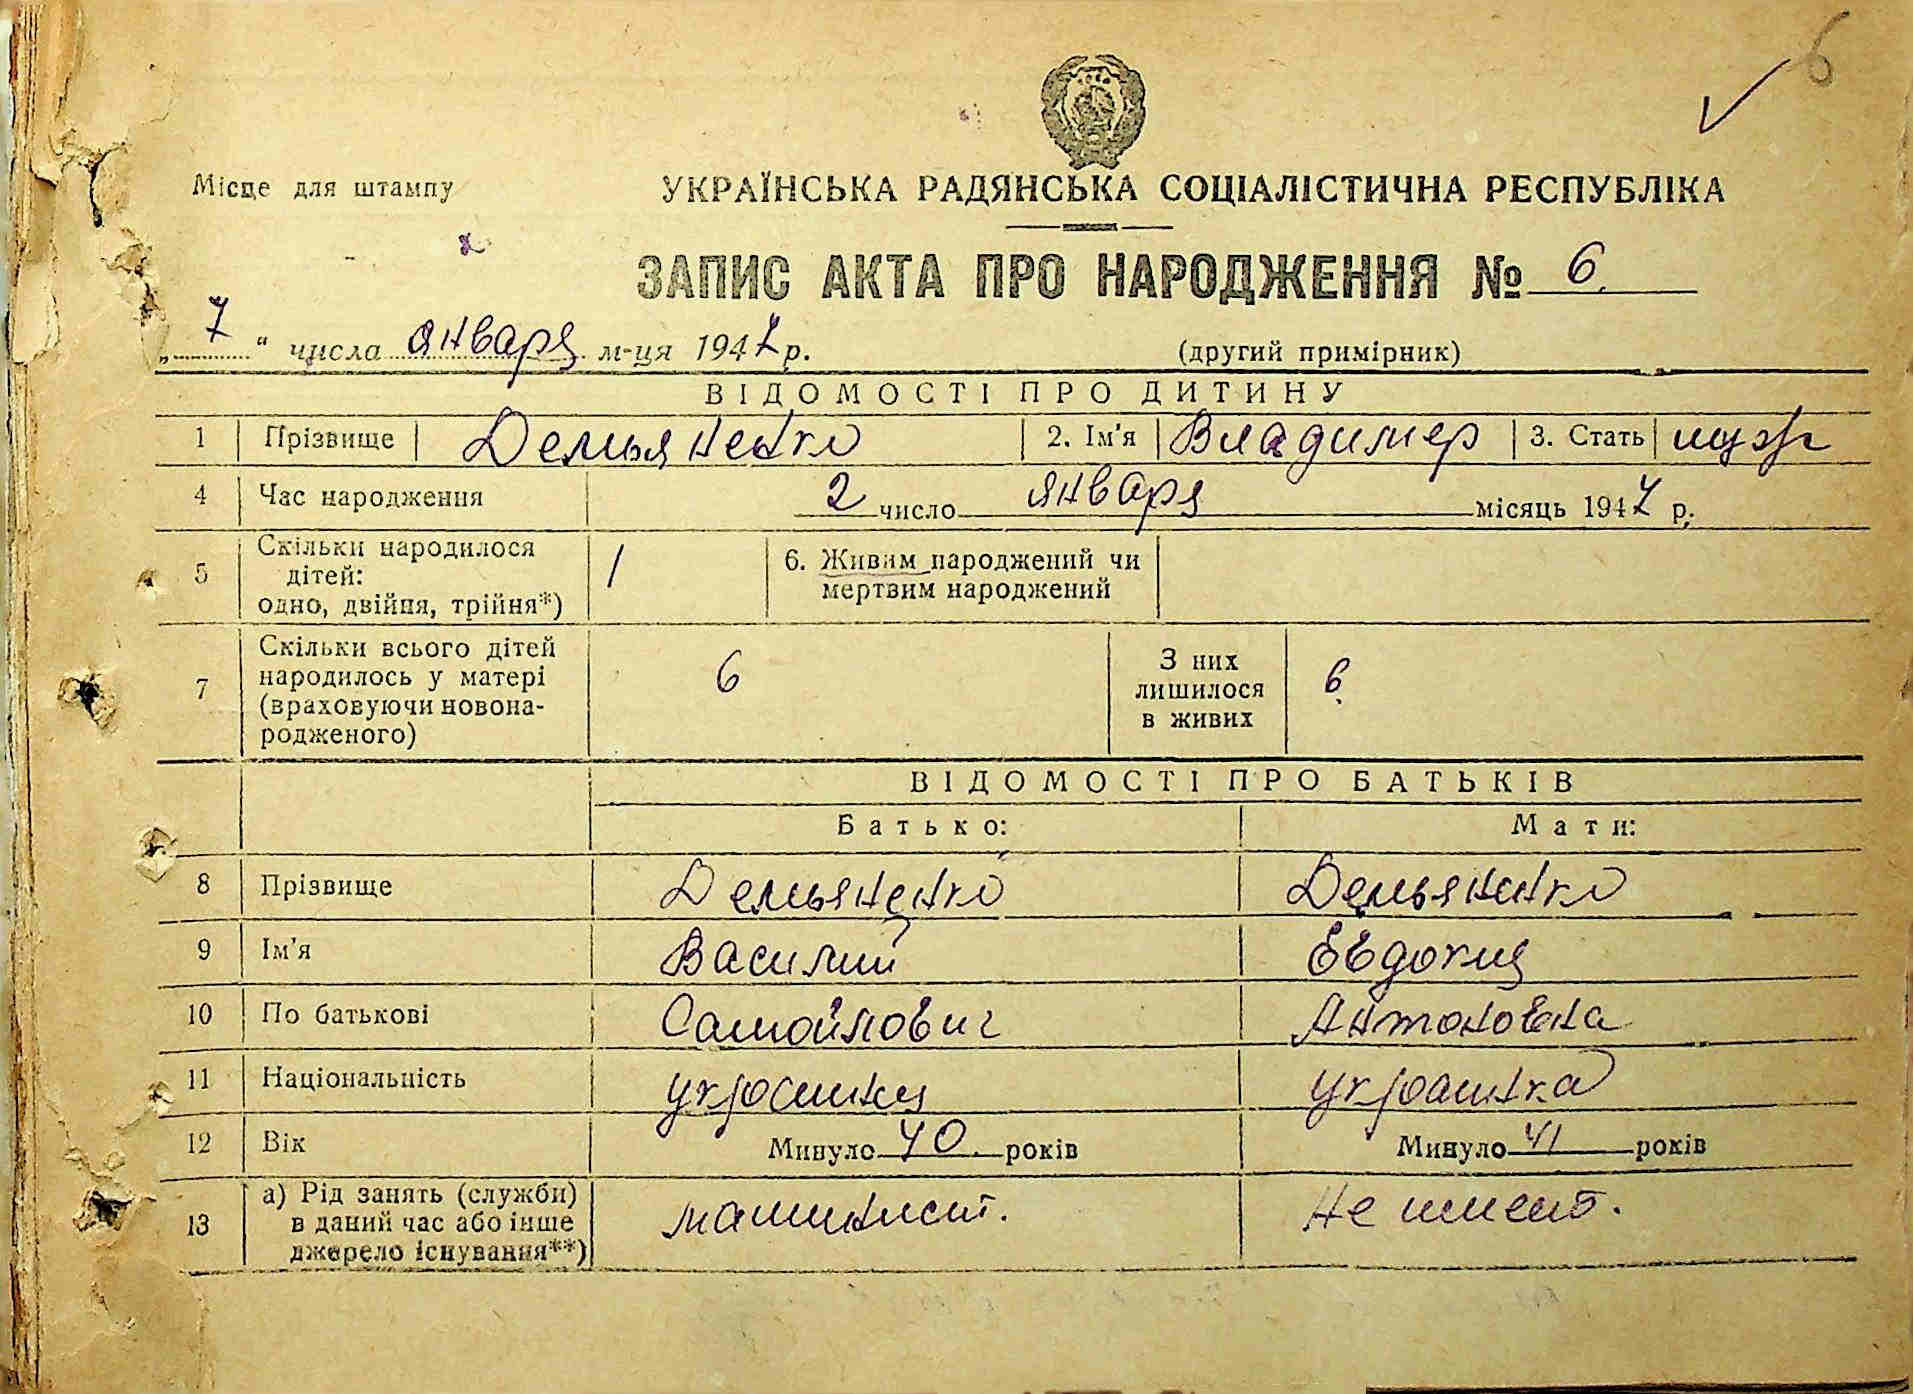 6
Місце для штампу
УКРАЇНСЬКА РАДЯНСЬКА СОЦІАЛІСТИЧНА РЕСПУБЛІКА
ЗАПИС АКТА ПРО НАРОДЖЕННЯ № 6.
„7“ числа января м-ця 1947 р.
(другий примірник)
ВІДОМОСТІ ПРО ДИТИНУ
1 Прізвище Демьяненко 2. Ім'я Владимер 3. Стать муж
4 Час народження 2 число января місяць 1947 р.
5 Скільки народилося дітей: одно, двійня, трійня*) 1 6. Живим народжений чи мертвим народжений
7 Скільки всього дітей народилось у матері (враховуючи новонародженого) 6 З них лишилося в живих 6.
ВІДОМОСТІ ПРО БАТЬКІВ
Батько: Мати:
8 Прізвище Демьяненко Демьяненко
9 Ім'я Василий Евдокия
10 По батькові Самойлович Антоновна
11 Національність украинец украинка
12 Вік Минуло 40 років Минуло 41 років
13 а) Рід занять (служби) в даний час або інше джерело існування**) машинист. Не имеет.